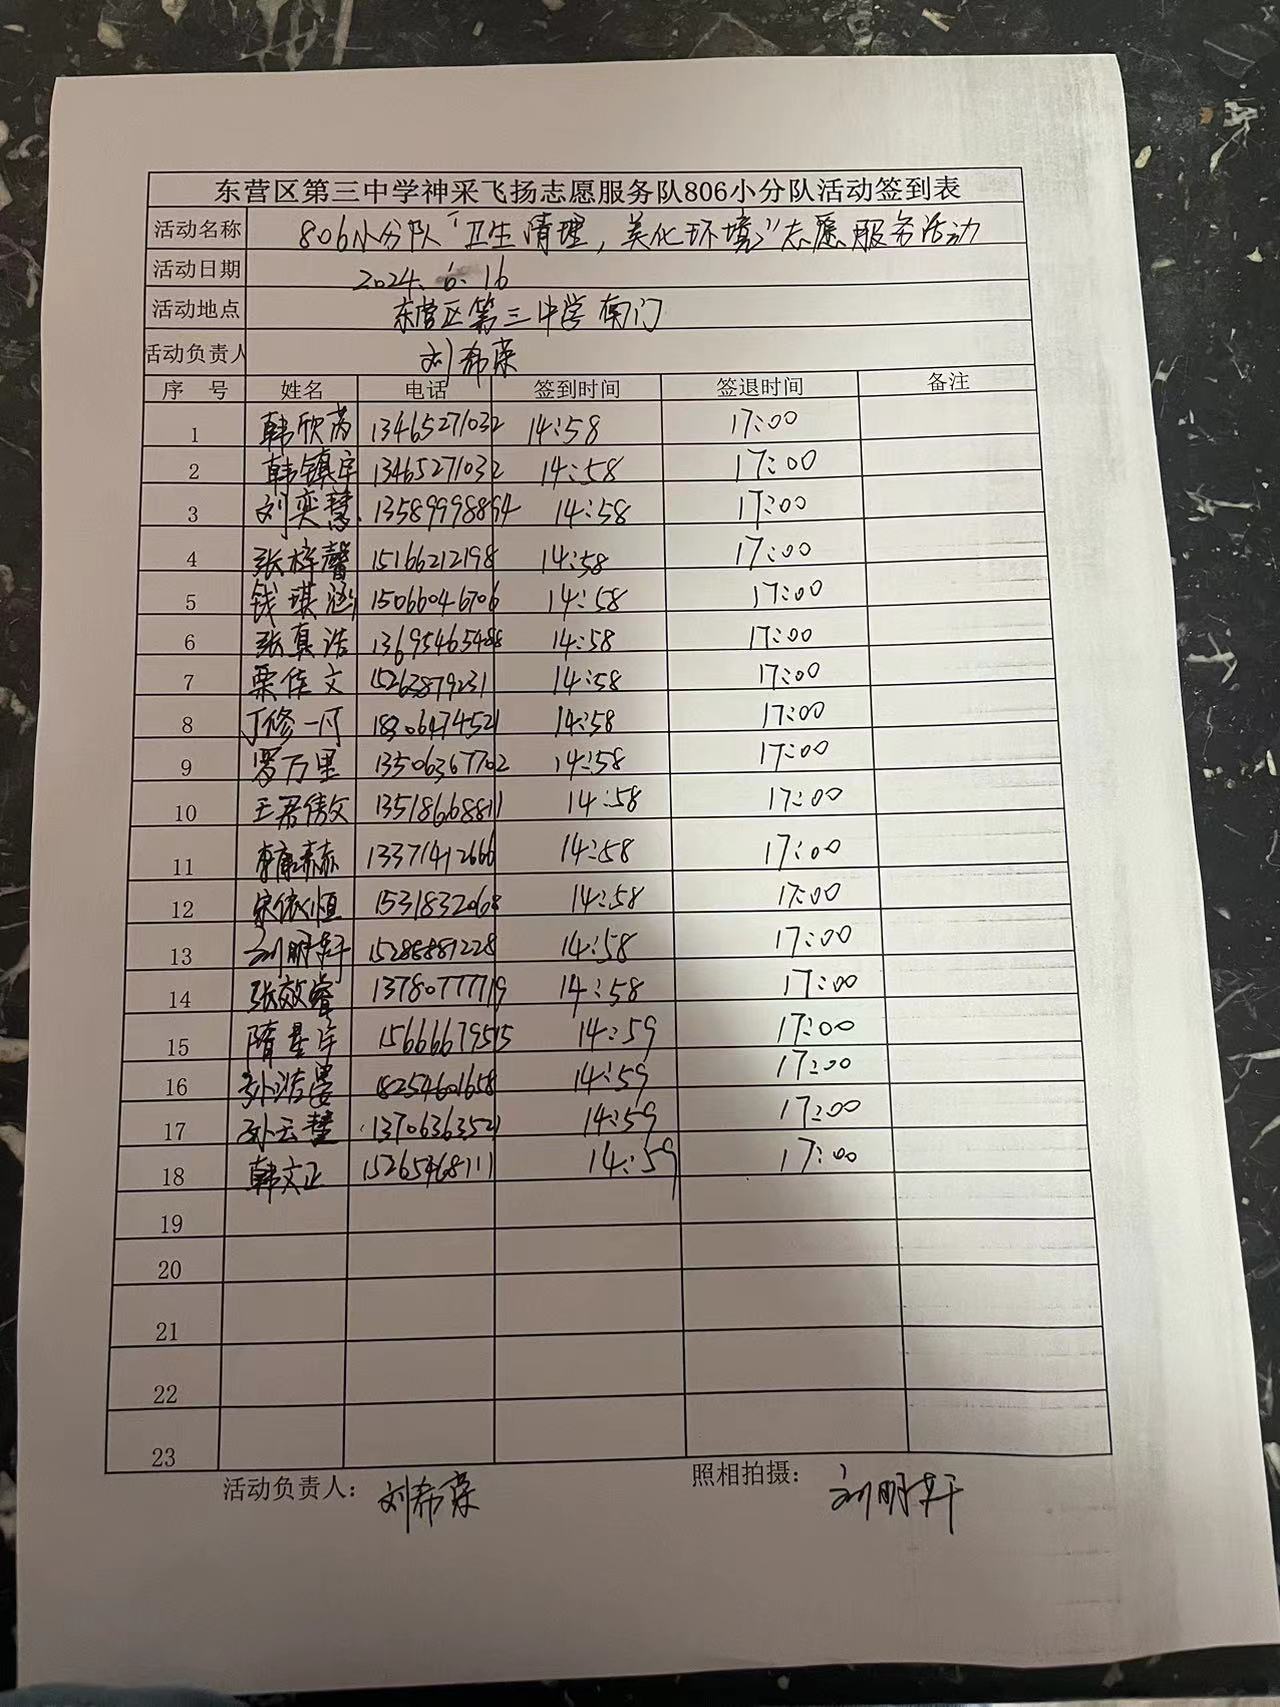 东营区第三中学神采飞扬志愿服务队806小分队活动签到表
活动名称 806小分队“卫生清理，美化环境”志愿服务活动
活动日期 2024.6.16
活动地点 东营区第三中学南门
活动负责人 刘希荣
序 号 姓名 电话 签到时间 签退时间 备注
1 韩欣芮 13465271032 14:58 17:00
2 韩镇宇 13465271032 14:58 17:00
3 刘奕慧 13589998864 14:58 17:00
4 张梓馨 15166212198 14:58 17:00
5 钱琪涵 15066046706 14:58 17:00
6 张真浩 14:58 17:00
7 栗佳文 15263879231 14:58 17:00
8 丁修一可 14:58 17:00
9 罗万里 13506367702 14:58 17:00
10 王君倩文 13518668811 14:58 17:00
11 李康赫 13371412666 14:58 17:00
12 宋依恒 15318332068 14:58 17:00
13 刘明轩 14:58 17:00
14 张效睿 13780777719 14:58 17:00
15 隋星宇 15666679515 14:59 17:00
16 孙浩晏 18254601658 14:59 17:00
17 孙云慧 13706363521 14:59 17:00
18 韩文正 15265468111 14:59 17:00
19
20
21
22
23
活动负责人：刘希荣 照相拍摄：刘明轩